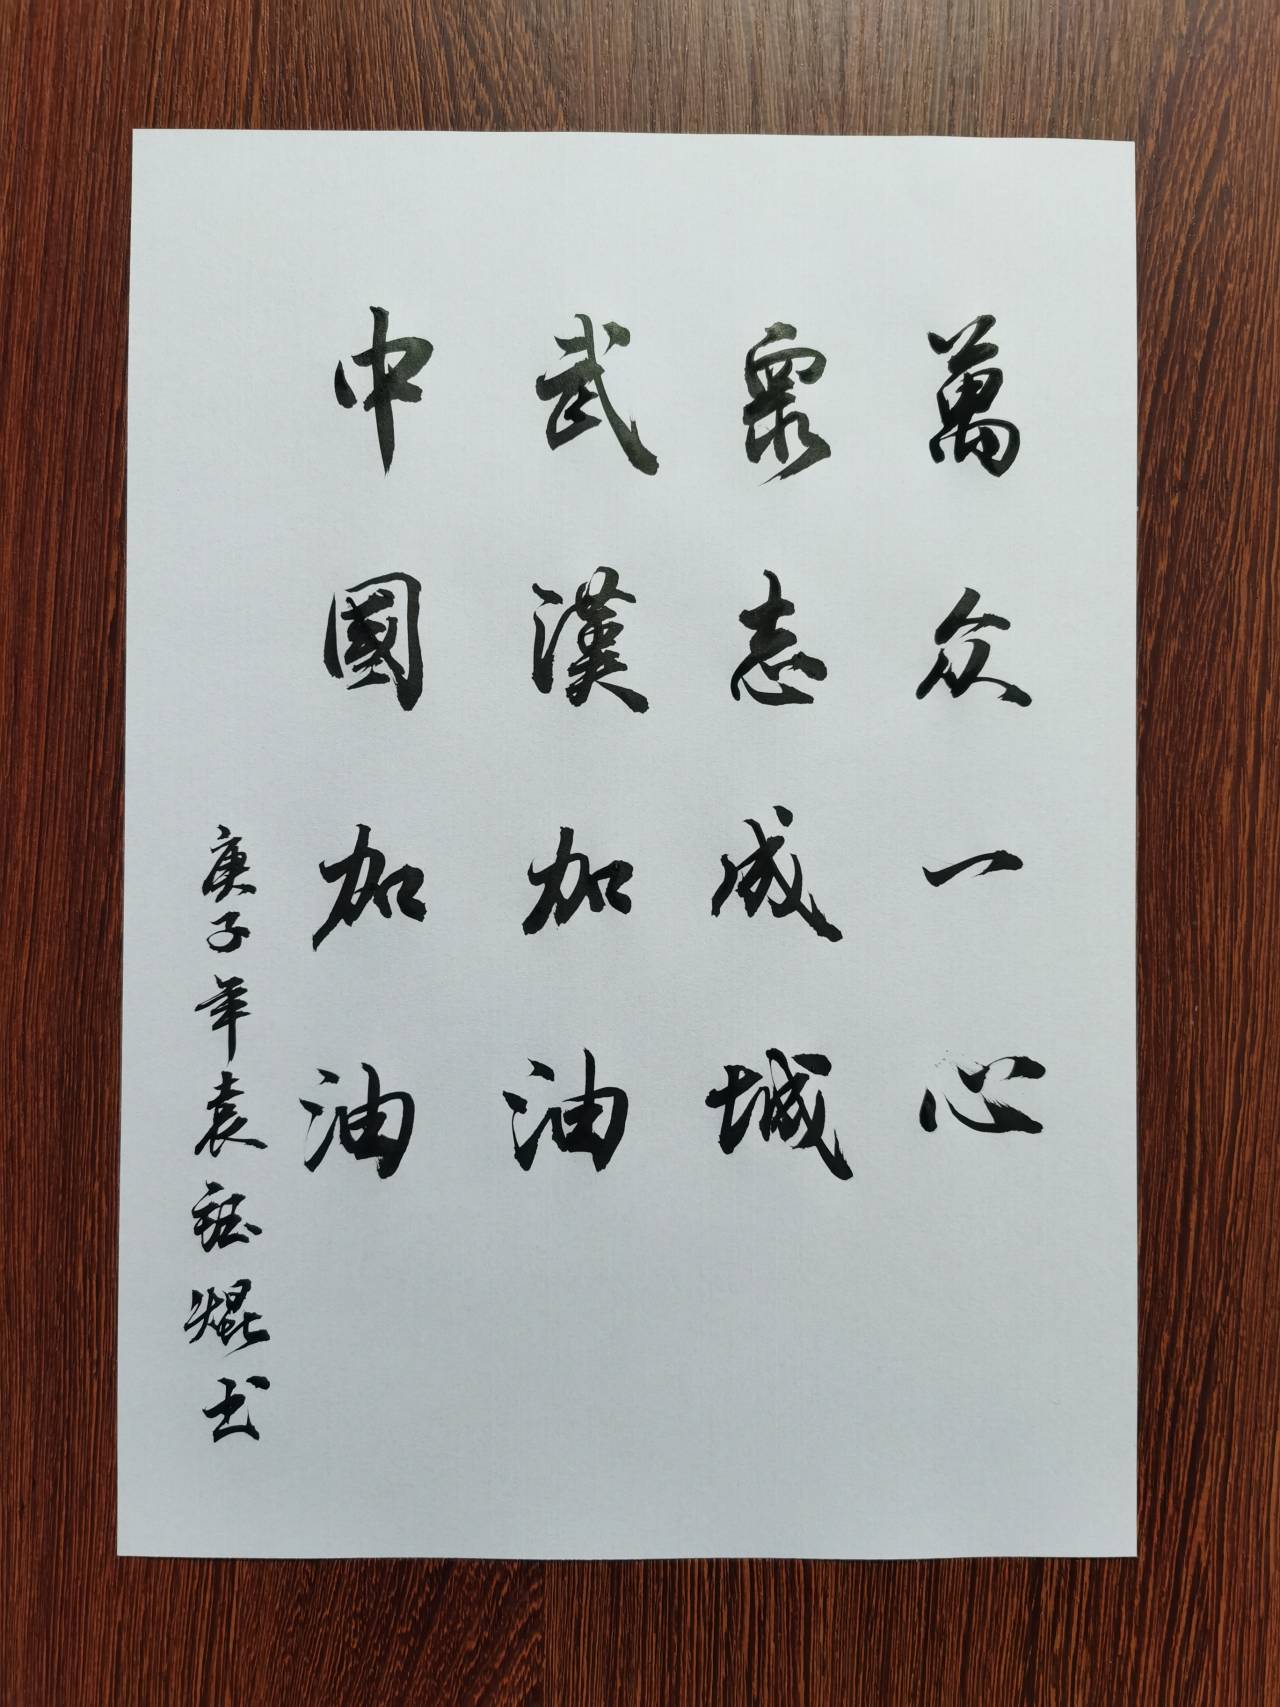 萬众一心
眾志成城
武漢加油
中國加加油
庚子年袁鈺焜书